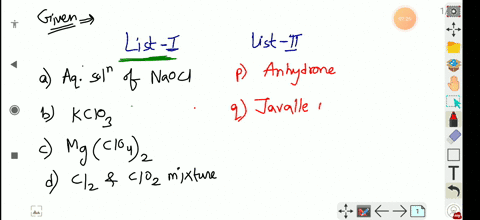 Given →
List-I
List-II
a) Aq. solⁿ of NaOCl
p) Anhydrone
b) KClO₃
q) Javalle
c) Mg(ClO₄)₂
d) Cl₂ & ClO₂ mixture
1